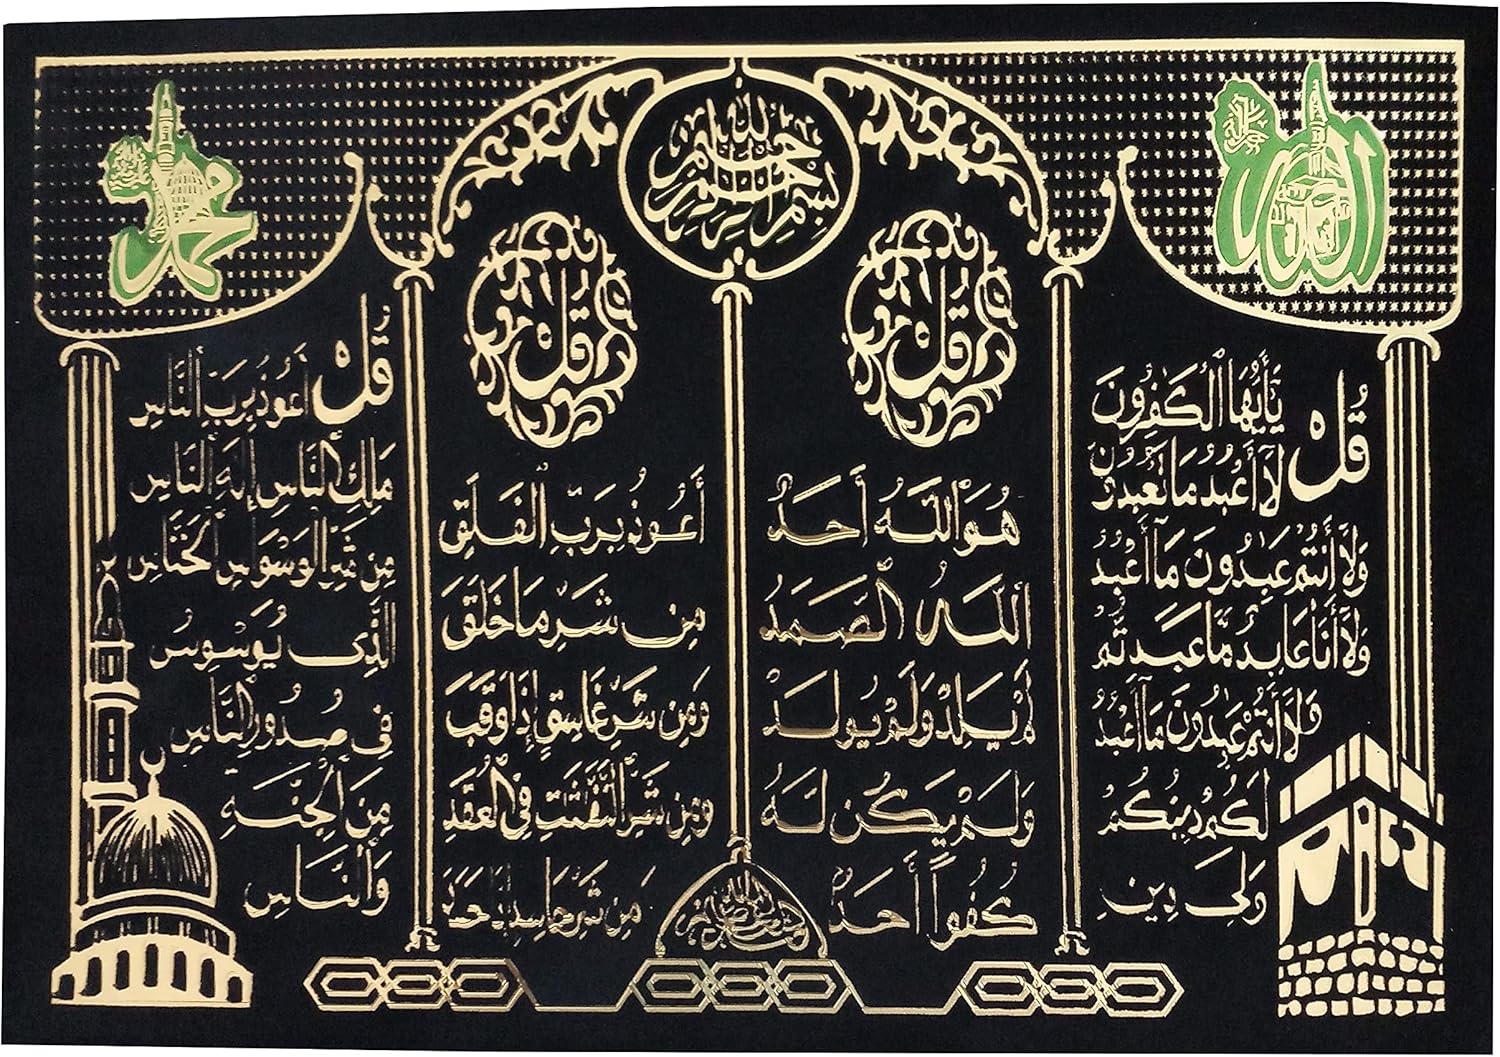 بِسْمِ اللهِ الرَّحْمٰنِ الرَّحِيمِ
الله
محمد
قُلْ يَٰٓأَيُّهَا ٱلْكَٰفِرُونَ
لَآ أَعْبُدُ مَا تَعْبُدُونَ
وَلَآ أَنتُمْ عَٰبِدُونَ مَآ أَعْبُدُ
وَلَآ أَنَا۠ عَابِدٌ مَّا عَبَدتُّمْ
وَلَآ أَنتُمْ عَٰبِدُونَ مَآ أَعْبُدُ
لَكُمْ دِينُكُمْ
وَلِىَ دِينِ
قُلْ
هُوَ ٱللَّهُ أَحَدٌ
ٱللَّهُ ٱلصَّمَدُ
لَمْ يَلِدْ وَلَمْ يُولَدْ
وَلَمْ يَكُن لَّهُ
كُفُواً أَحَدٌ
قُلْ
أَعُوذُ بِرَبِّ ٱلْفَلَقِ
مِن شَرِّ مَا خَلَقَ
وَمِن شَرِّ غَاسِقٍ إِذَا وَقَبَ
وَمِن شَرِّ ٱلنَّفَّٰثَٰتِ فِى ٱلْعُقَدِ
مِن شَرِّ حَاسِدٍ إِذَا حَسَدَ
قُلْ أَعُوذُ بِرَبِّ ٱلنَّاسِ
مَلِكِ ٱلنَّاسِ إِلَٰهِ ٱلنَّاسِ
مِن شَرِّ ٱلْوَسْوَاسِ ٱلْخَنَّاسِ
ٱلَّذِى يُوَسْوِسُ
فِى صُدُورِ ٱلنَّاسِ
مِنَ ٱلْجِنَّةِ
وَٱلنَّاسِ